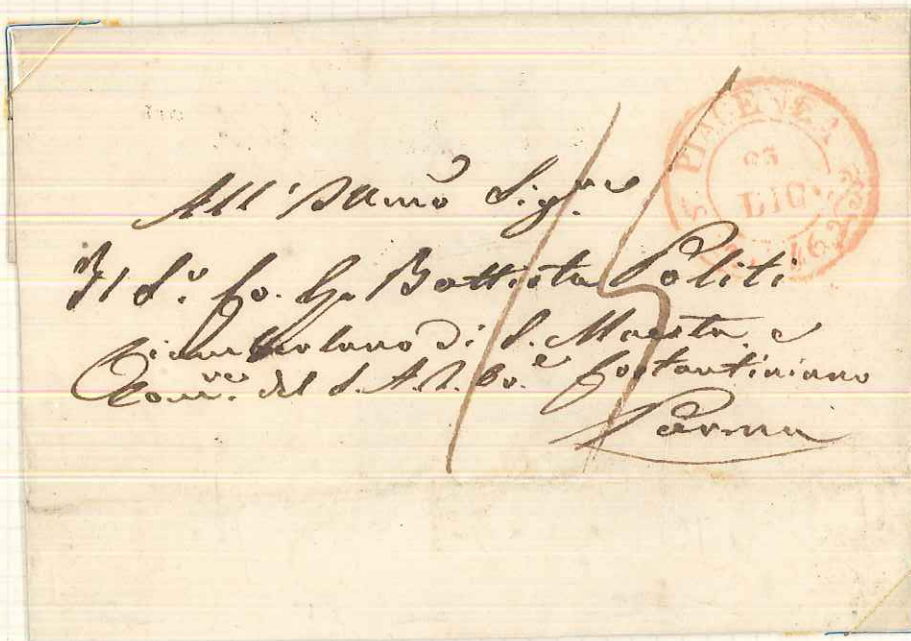 PIACENZA
25
LUG.
46
All' Illmo Sig.re
Il S.r Co. G. Battista Politi
Ciambelano di S. Maestà e
Com.re del S. A. I. Or.e Costantiniano
Parma
15